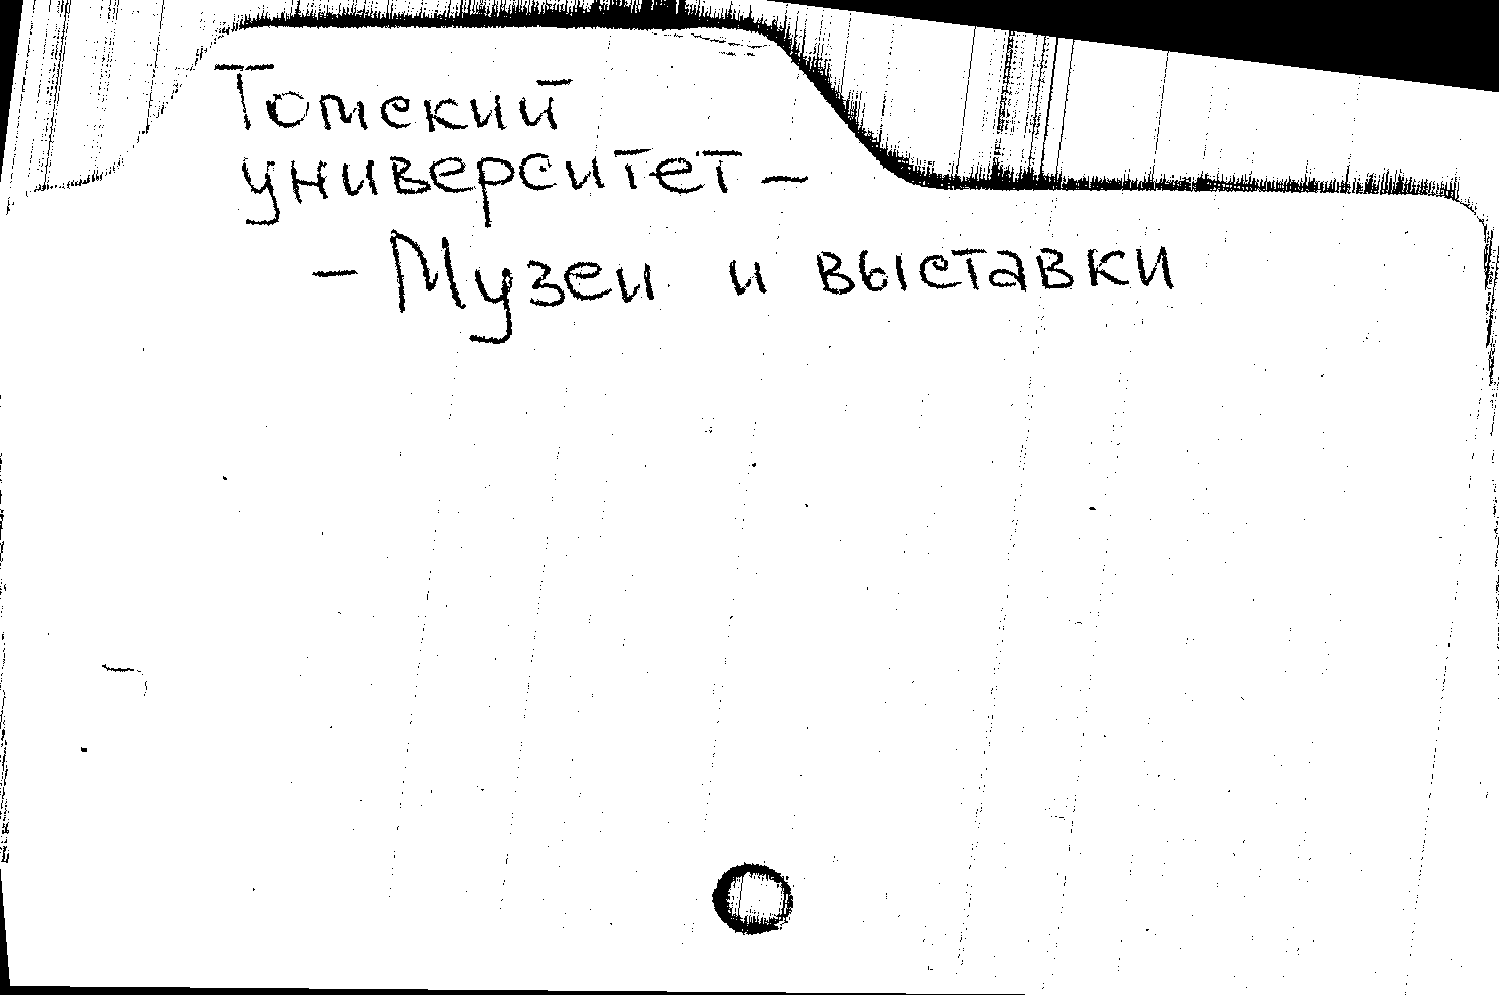 Томский
университет –
– Музеи и выставки